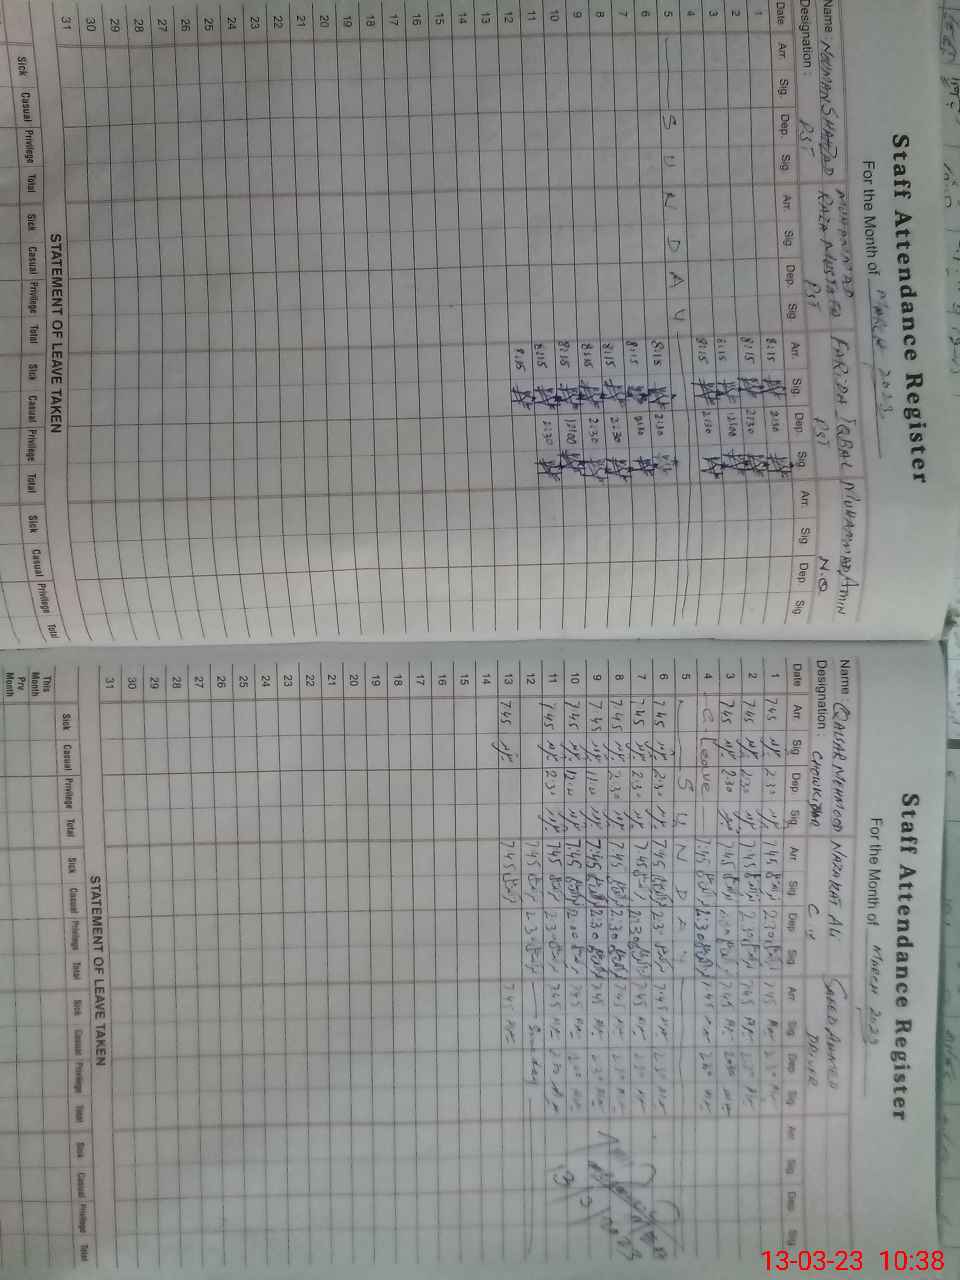 Staff Attendance Register
For the Month of MARCH 2023
Name : NOUMAN SHAHZAD MUHAMMAD RAZA MUSTAFA FARIDA IQBAL MUHAMMAD AMIN
Designation : PST PST PST N.Q
Date Arr. Sig. Dep. Sig Arr. Sig. Dep. Sig. Arr. Sig. Dep. Sig. Arr. Sig Dep Sig
1 8:15 2:30
2 8:15 2:30
3 8:15 12:00
4 8:15 2:30
5 SUNDAY
6 8:15 2:30
7 8:15 2:30
8 8:15 2:30
9 8:15 2:30
10 8:15 12:00
11 8:15 2:30
12 8:15
13
14
15
16
17
18
19
20
21
22
23
24
25
26
27
28
29
30
31
STATEMENT OF LEAVE TAKEN
Sick Casual Privilege Total Sick Casual Privilege Total Sick Casual Privilege Total Sick Casual Privilege Total
Staff Attendance Register
For the Month of MARCH 2023
Name : QAISAR MEHMOOD NAZAKAT ALI SAEED AHMED
Designation : CHOWKIDAR C IV DRIVER
Date Arr. Sig Dep. Sig. Arr Sig. Dep. Sig Arr Sig. Dep Sig. Arr Sig. Dep Sig
1 7:45 2:30 7:45 2:30 7:45 2:30
2 7:45 2:30 7:45 2:30 7:45 2:30
3 7:45 2:30 7:45 7:45
4 C Leave 7:45 2:30 7:45 2:30
5 SUNDAY
6 7:45 2:30 7:45 2:30 7:45 2:30
7 7:45 2:30 7:45 2:30 7:45 2:30
8 7:45 2:30 7:45 2:30 7:45 2:30
9 7:45 7:45 2:30 7:45 2:30
10 7:45 7:45 7:45
11 7:45 2:30 7:45 2:30 7:45 2:30
12 7:45 2:30 Sunday
13 7:45 7:45 7:45
14
15
16
17
18
19
20
21
22
23
24
25
26
27
28
29
30
31
STATEMENT OF LEAVE TAKEN
Sick Casual Privilege Total Sick Casual Privilege Total Sick Casual Privilege Total Sick Casual Privilege Total
This Month
Prv. Month
13-03-23 10:38